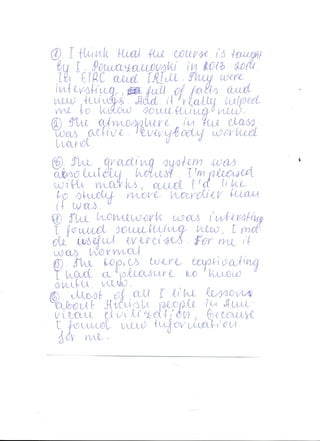 ① I think that the course is taught
by I. Romazanovski in 2013 2014
in EIRC and IRIM. They were
intersting, full of facts and
new things. And it really helped
me to know something new.
② The atmosphere in the class
was active. Everybody worked
hard.
③ The grading system was
absolutely honest. I'm pleased
with marks, and I'd like
to study more hardier than
it was.
④ The homework was intersting
I found something new, I ma-
de useful exercises. For me it
was normal
⑤ The topics were captivating
I had a pleasure to know
smth. new.
⑥ Most of all I like lessons
about Amish people in Ame-
rican civilization, because
I found new information
for me.